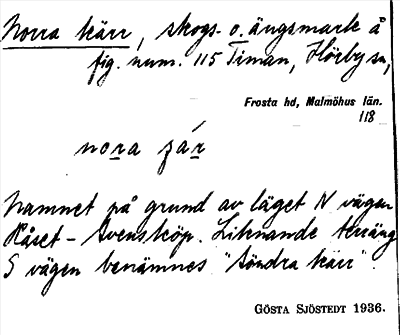 Norra kärr, skogs- o. ängsmark å
fig. num. 115 Timan, Hörby sn,
Frosta hd, Malmöhus län.
118
nora šár
Namnet på grund av läget N vägen
Råset - Svensköp. Liknande terräng
S vägen benämnes "Söndra kärr".
GÖSTA SJÖSTEDT 1936.